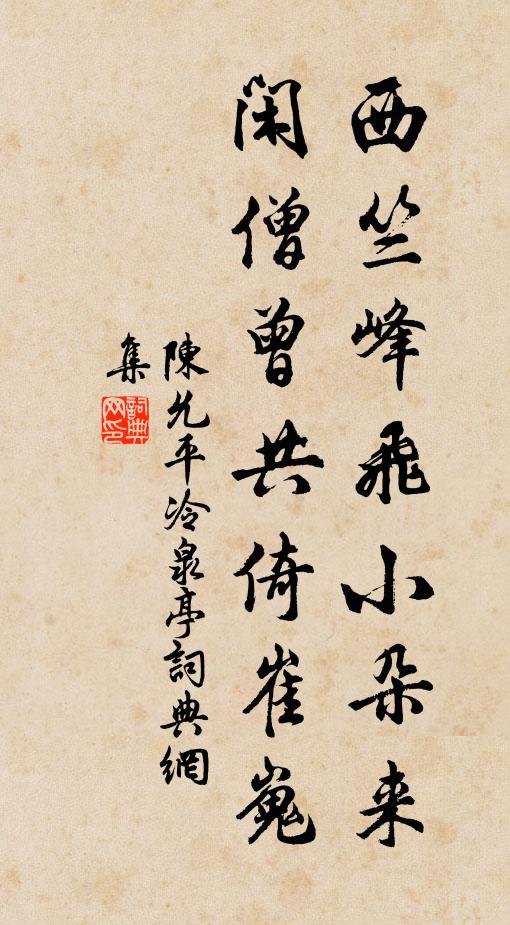 西竺峰飛小朵来
閑僧曾共倚崔嵬
陳允平冷泉亭詞典網
集
詞典網印